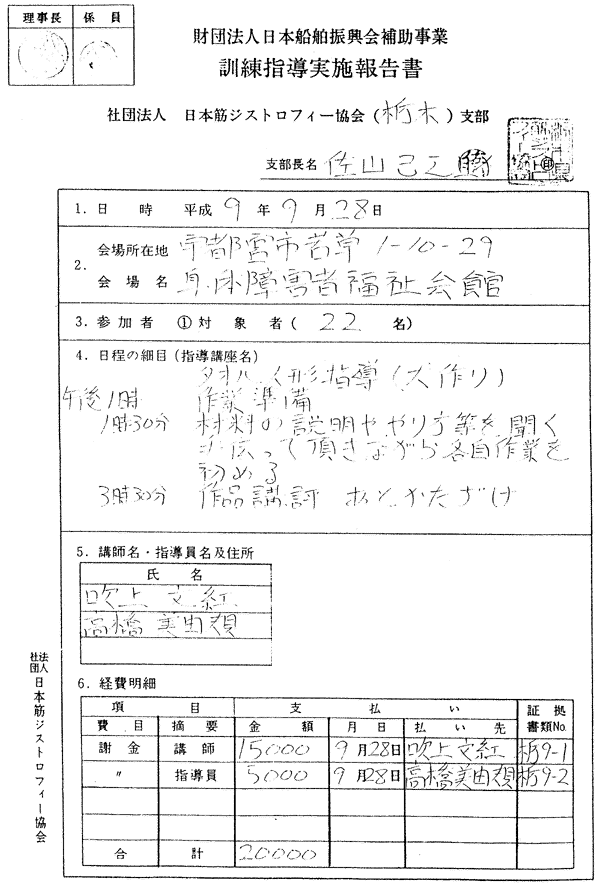 理事長 係員
財団法人日本船舶振興会補助事業
訓練指導実施報告書
社団法人 日本筋ジストロフィー協会(栃木)支部
支部長名 佐山己之 印
1. 日 時 平成9年9月28日
2. 会場所在地 宇都宮市若草1-10-29
会場名 身体障害者福祉会館
3. 参加者 ①対象者(22名)
4. 日程の細目(指導講座名)
タオル人形指導(犬作り)
午後1時 作業準備
1時30分 材料の説明ややり方等を聞く
手伝って頂きながら各自作業を
初める
3時30分 作品講評 あとかたずけ
5. 講師名・指導員名及住所
氏名
吹上文紅
高橋美由
6. 経費明細
項目 支払い 証拠書類No.
費目 摘要 金額 月日 払い先
謝金 講師 15000 9月28日 吹上文紅 栃9-1
〃 指導員 5000 9月28日 高橋美由 栃9-2
合計 20000
社団法人 日本筋ジストロフィー協会